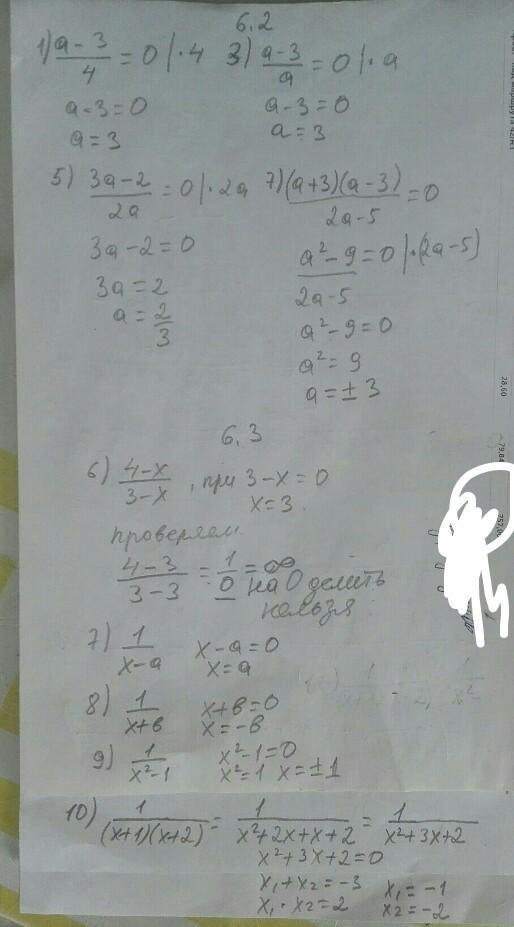 6.2
1) (a-3)/4 = 0 |·4   3) (a-3)/a = 0 |·a
a-3=0   a-3=0
a=3   a=3
5) (3a-2)/2a = 0 |·2a   7) (a+3)(a-3)/(2a-5) = 0
3a-2=0   (a²-9)/(2a-5) = 0 |·(2a-5)
3a=2
a=2/3   a²-9=0
a²=9
a=±3
6.3
6) (4-x)/(3-x), при 3-x=0
x=3
проверяем
(4-3)/(3-3) = 1/0 = ∞ на 0 делить
нельзя
7) 1/(x-a)   x-a=0
x=a
8) 1/(x+в)   x+в=0
x=-в
9) 1/(x²-1)   x²-1=0
x²=1   x=±1
10) 1/((x+1)(x+2)) = 1/(x²+2x+x+2) = 1/(x²+3x+2)
x²+3x+2=0
x₁+x₂=-3   x₁=-1
x₁·x₂=2   x₂=-2
28,60